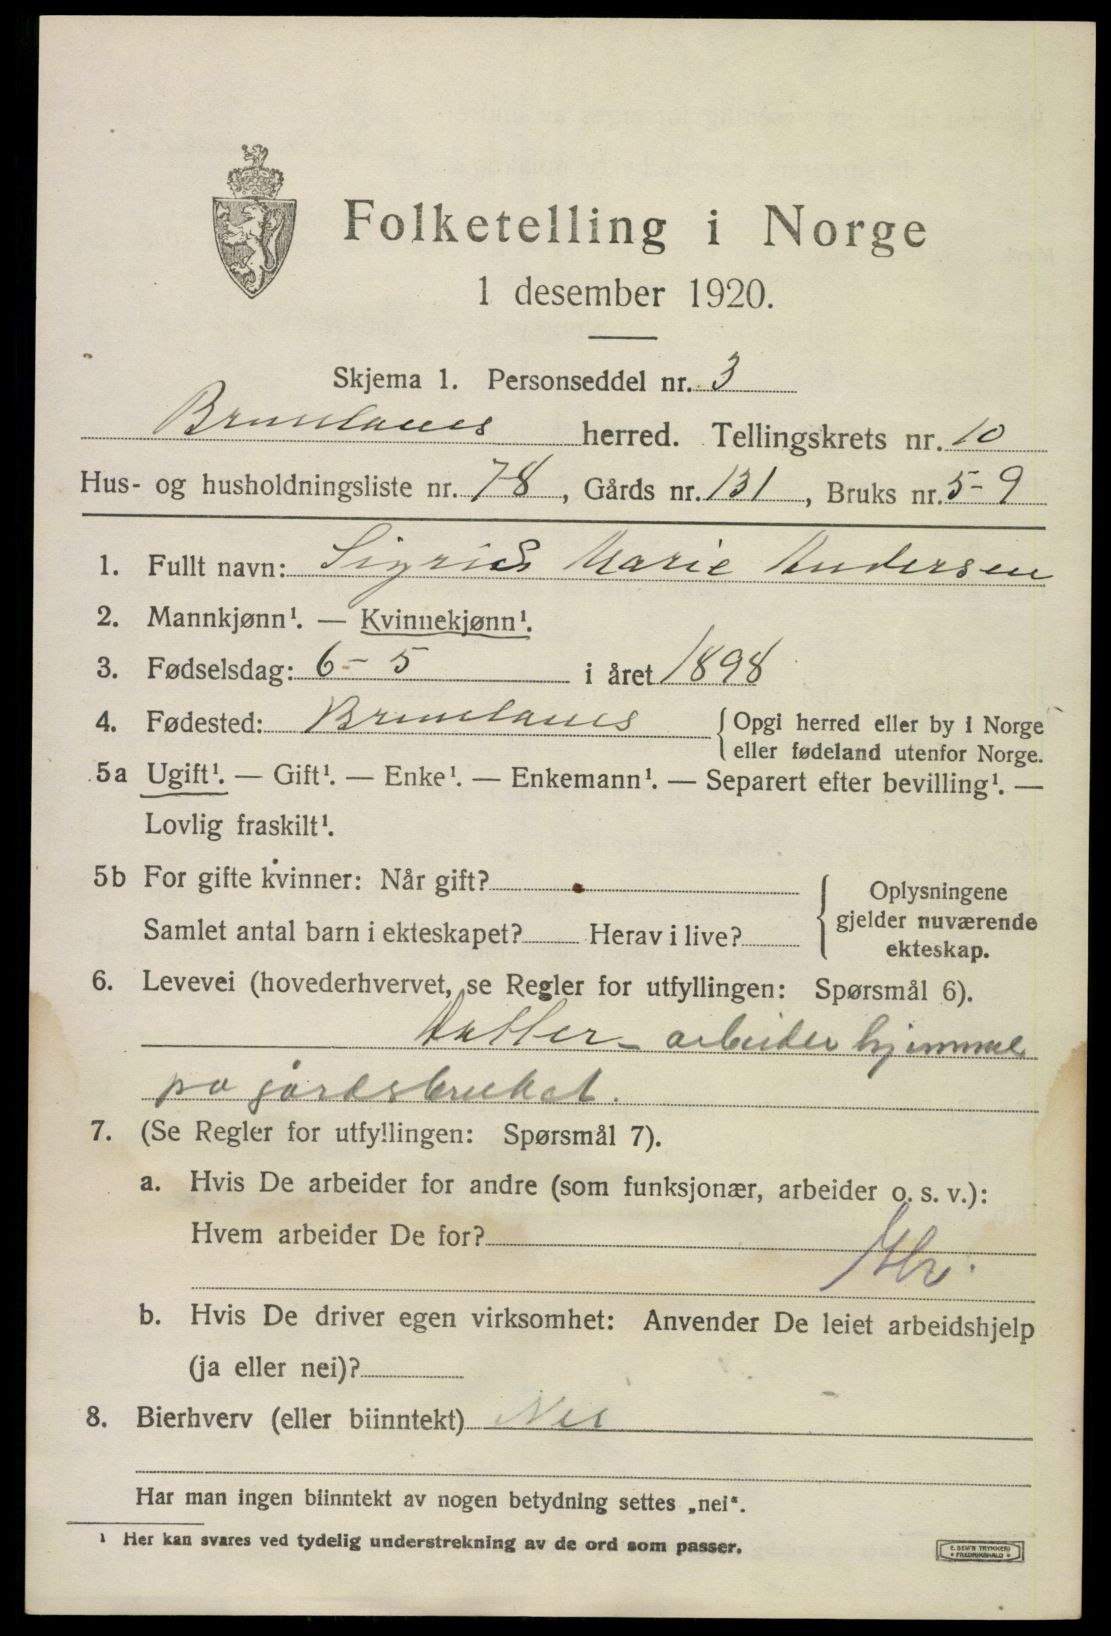 Folketelling i Norge
1 desember 1920.
Skjema 1. Personseddel nr. 3
Brunlanes herred. Tellingskrets nr. 10
Hus- og husholdningsliste nr. 78, Gårds nr. 131, Bruks nr. 5-9
1. Fullt navn: Sigrid Marie Andersen
2. Mannkjønn¹. — Kvinnekjønn¹.
3. Fødselsdag: 6-5 i året 1898
4. Fødested: Brunlanes { Opgi herred eller by i Norge
eller fødeland utenfor Norge.
5a Ugift¹. — Gift¹. — Enke¹. — Enkemann¹. — Separert efter bevilling¹. —
Lovlig fraskilt¹.
5b For gifte kvinner: Når gift?
Samlet antal barn i ekteskapet? Herav i live?
Oplysningene
gjelder nuværende
ekteskap.
6. Levevei (hovederhvervet, se Regler for utfyllingen: Spørsmål 6).
Datter - arbeider hjemme
på gårdsbruket.
7. (Se Regler for utfyllingen: Spørsmål 7).
a. Hvis De arbeider for andre (som funksjonær, arbeider o. s. v.):
Hvem arbeider De for?
b. Hvis De driver egen virksomhet: Anvender De leiet arbeidshjelp
(ja eller nei)?
8. Bierhverv (eller biinntekt) Nei
Har man ingen biinntekt av nogen betydning settes „nei“.
¹ Her kan svares ved tydelig understrekning av de ord som passer.
E. SEM'S TRYKKERI
* FREDRIKSHALD *